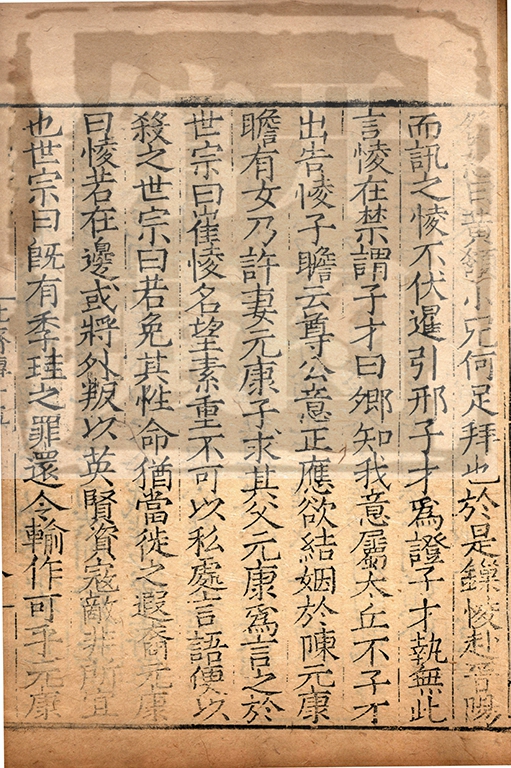 曰黄頷小兒何足拜也於是鏁㥄赴晉陽
而訊之㥄不伏暹引邢子才爲證子才執無此
言㥄在禁謂子才曰卿知我意屬太丘不子才
出告㥄子瞻云尊公意正應欲結姻於陳元康
瞻有女乃許妻元康子求其父元康爲言之於
世宗曰崔㥄名望素重不可以私處言語便以
殺之世宗曰若免其性命猶當徙之遐裔元康
曰㥄若在邊或將外叛以英賢資寇敵非所宜
也世宗曰旣有季珪之罪還令輸作可乎元康